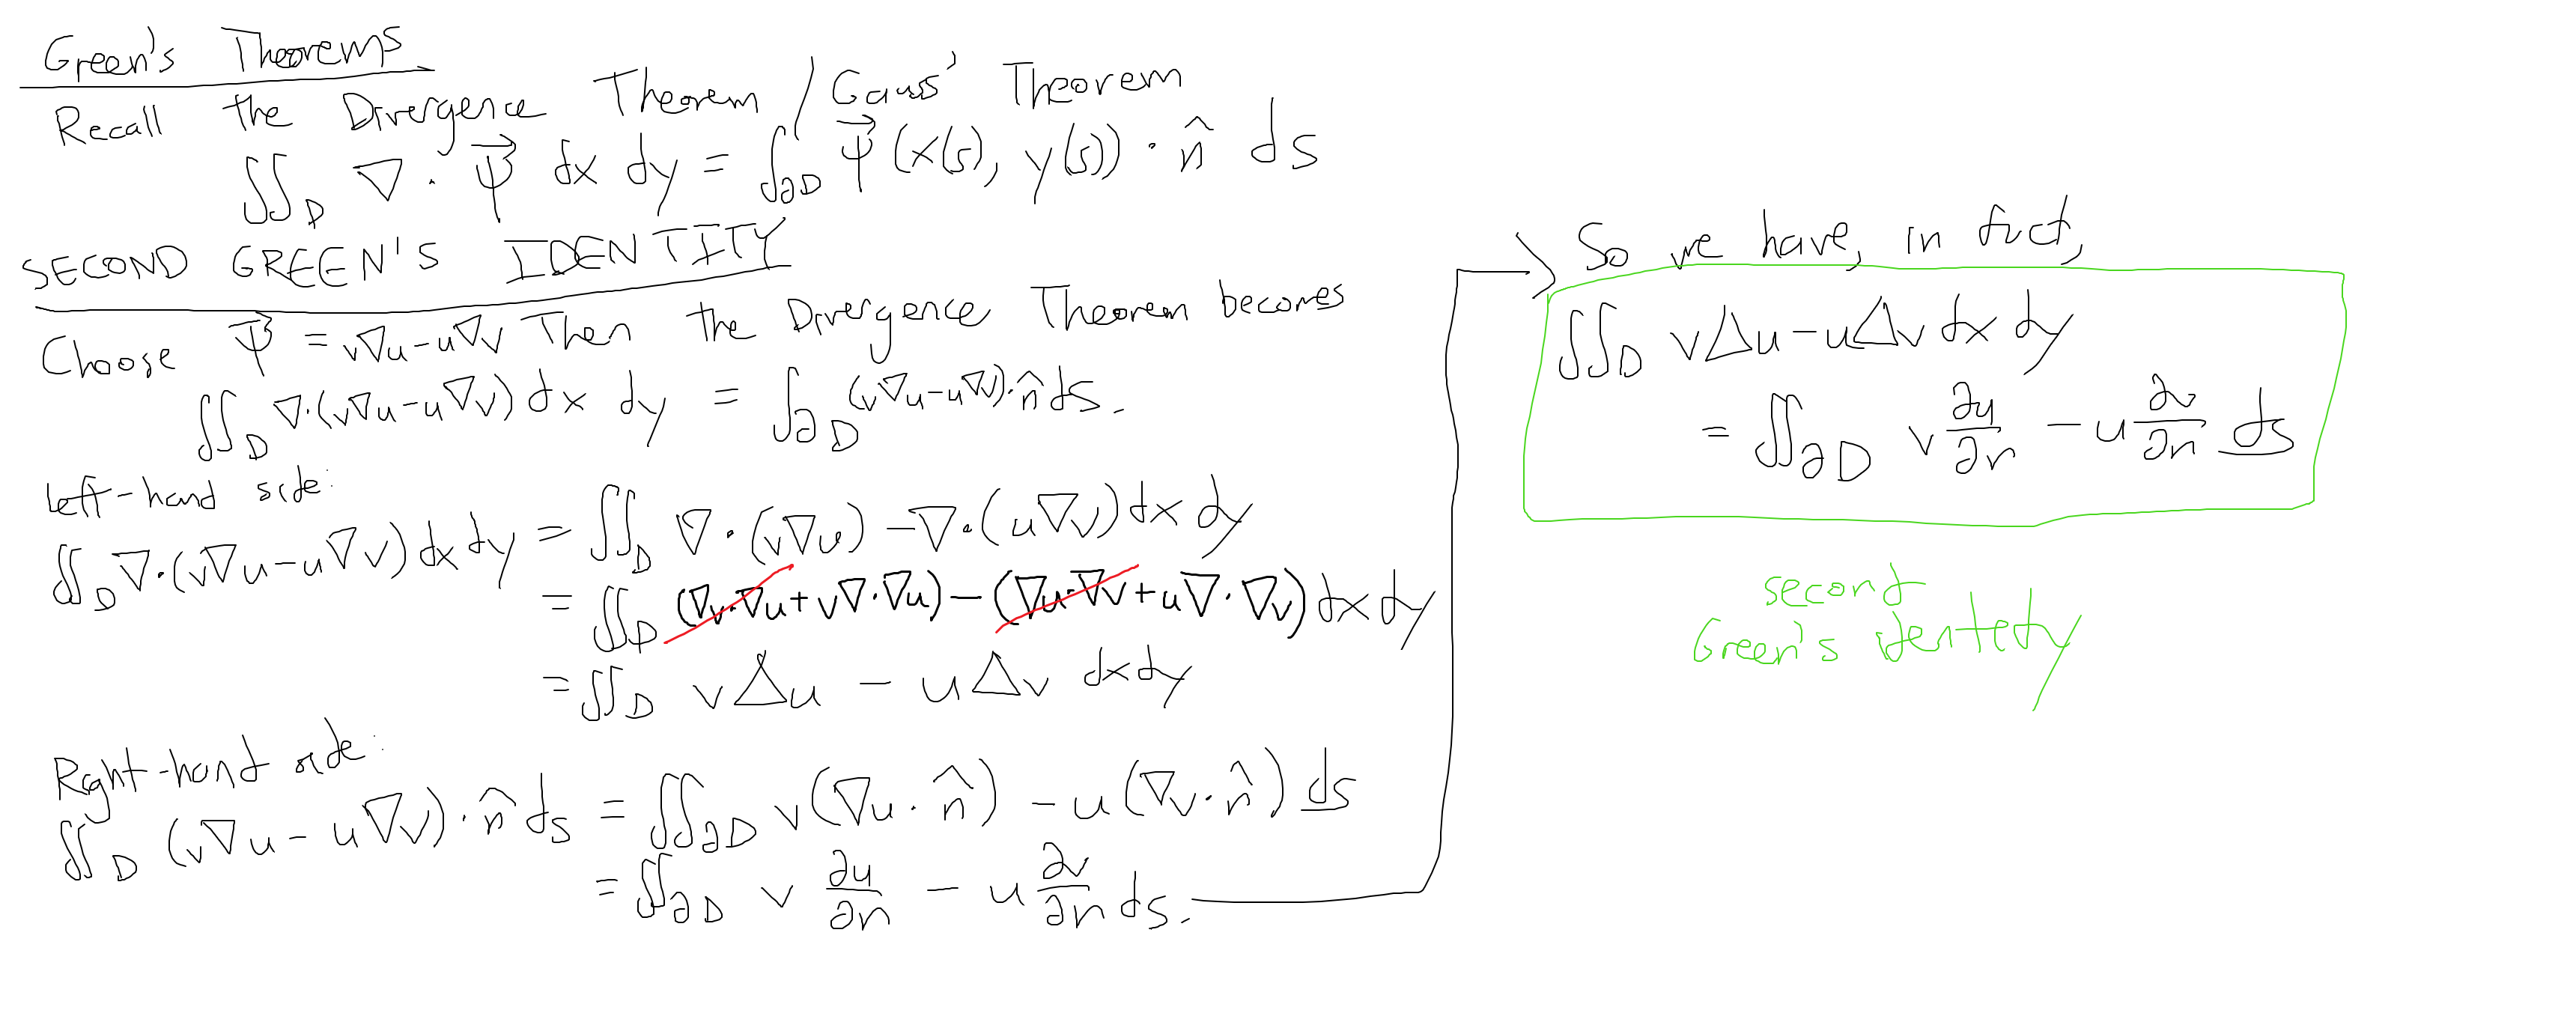 Green's Theorems
Recall the Divergence Theorem / Gauss' Theorem
∬_D ∇ · Ψ⃗ dx dy = ∫_∂D Ψ⃗ (x(s), y(s)) · n̂ ds
SECOND GREEN'S IDENTITY
Choose Ψ⃗ = v∇u - u∇v Then the Divergence Theorem becomes
∬_D ∇·(v∇u - u∇v) dx dy = ∫_∂D (v∇u - u∇v)·n̂ ds.
Left-hand side:
∬_D ∇·(v∇u - u∇v) dx dy = ∬_D ∇·(v∇u) - ∇·(u∇v) dx dy
= ∬_D (∇v·∇u + v∇·∇u) - (∇u·∇v + u∇·∇v) dx dy
= ∬_D v∆u - u∆v dx dy
Right-hand side:
∬_D (v∇u - u∇v)·n̂ ds = ∬_∂D v(∇u·n̂) - u(∇v·n̂) ds
= ∬_∂D v ∂u/∂n - u ∂v/∂n ds.
So we have, in fact,
∬_D v∆u - u∆v dx dy
= ∬_∂D v ∂u/∂n - u ∂v/∂n ds
second
Green's identity